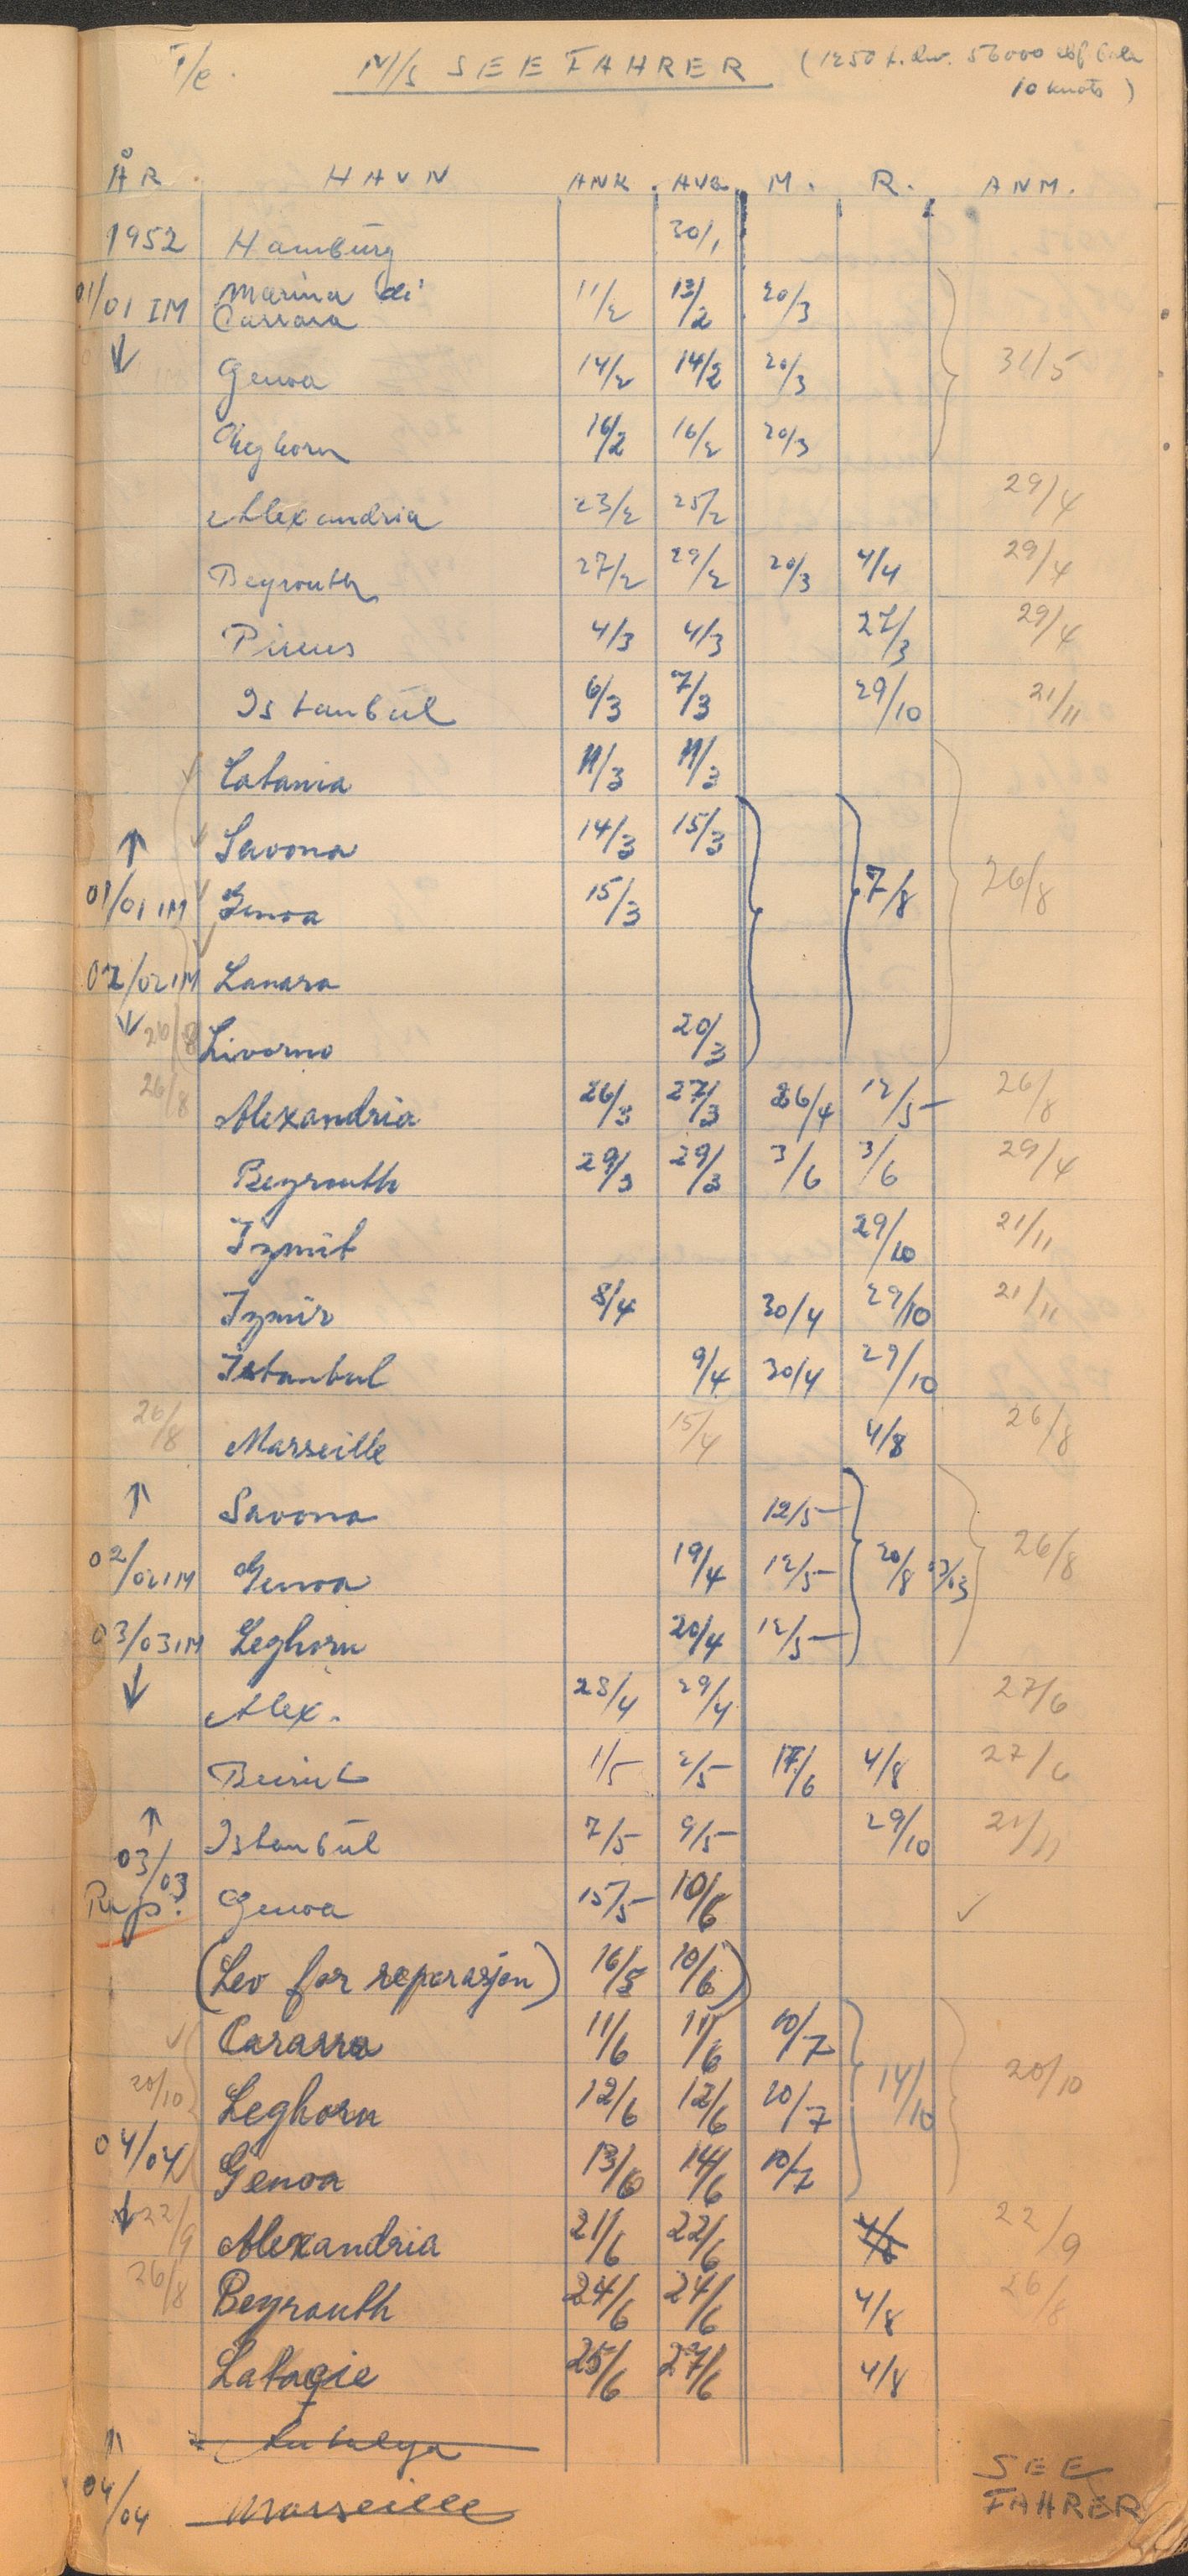 T/C. M/S SEEFAHRER (1250 t.dw. 56000 cbf bale
10 knots)
ÅR. HAVN ANK. AVG. M. R. ANM.
1952 Hamburg 30/1
01/01 IM Marina di Carrara 11/2 13/2 20/3
↓ Genoa 14/2 14/2 20/3 31/5
Leghorn 16/2 16/2 20/3
Alexandria 23/2 25/2 29/4
Beyrouth 27/2 29/2 20/3 4/4 29/4
Pireus 4/3 4/3 27/3 29/4
Istanbul 6/3 7/3 29/10 21/11
Catania 11/3 11/3
↑ Savona 14/3 15/3
01/01 IM Genoa 15/3 7/8 26/8
02/02 IM Lanara
↓ 26/8 Livorno 20/3
26/8 Alexandria 26/3 27/3 26/4 12/5 26/8
Beyrouth 29/3 29/3 3/6 3/6 29/4
Izmit 29/10 21/11
Izmir 8/4 30/4 29/10 21/11
Istanbul 9/4 30/4 29/10
26/8 Marseille 15/4 4/8 26/8
↑ Savona 12/5
02/02 IM Genoa 19/4 12/5 20/8 03/03 26/8
03/03 IM Leghorn 20/4 12/5
↓ Alex. 28/4 29/4 27/6
Beirut 1/5 2/5 17/6 4/8 27/6
↑ Istanbul 7/5 9/5 29/10 21/11
03/03
Rep. Genoa 15/5 10/6 ✓
(Lev for reparasjon) 16/5 10/6)
✓ Cararra 11/6 11/6 10/7
20/10 Leghorn 12/6 12/6 10/7 14/10 20/10
04/04 Genoa 13/6 14/6 10/7
↓ 22/9 Alexandria 21/6 22/6 4/8 22/9
26/8 Beyrouth 24/6 24/6 4/8 26/8
Latagie 25/6 27/6 4/8
↑ Antalya
04/04 Marseille
SEE
FAHRER